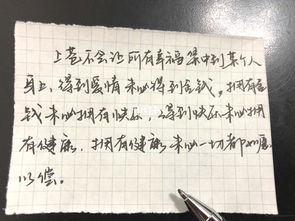 上苍不会让所有幸福集中到某个人
身上，得到爱情未必得到金钱。拥有金
钱未必拥有快乐，得到快乐未必拥
有健康，拥有健康未必一切都如愿
以偿。